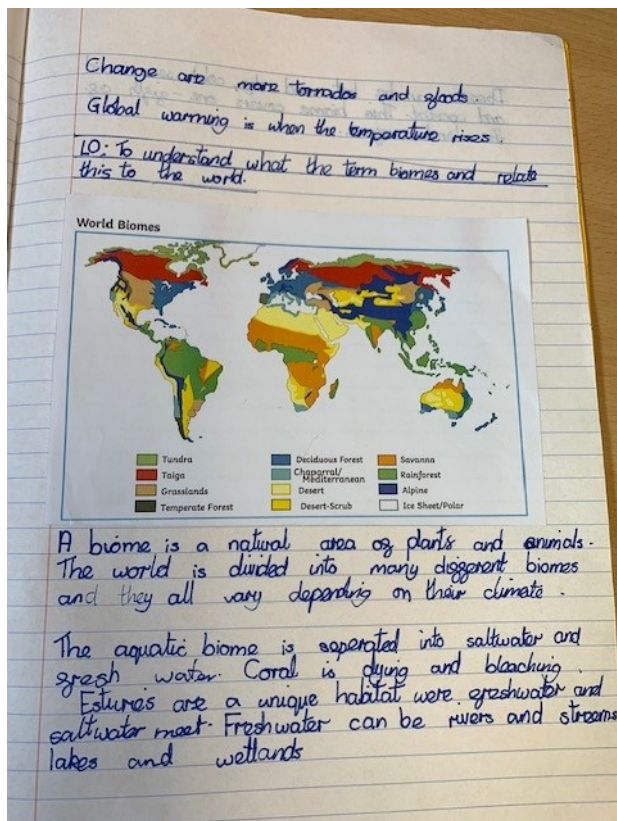 Change are more tornados and floods
Global warming is when the temperature rises.
LO: To understand what the term biomes and relate
this to the world.
World Biomes
Tundra
Taiga
Grasslands
Temperate Forest
Deciduous Forest
Chaparral/
Mediterranean
Desert
Desert-Scrub
Savanna
Rainforest
Alpine
Ice Sheet/Polar
A biome is a natural area of plants and animals.
The world is divided into many different biomes
and they all vary depending on their climate.
The aquatic biome is seperated into saltwater and
fresh water. Coral is dying and bleaching.
Estures are a unique habitat were freshwater and
saltwater meet. Freshwater can be rivers and streams
lakes and wetlands